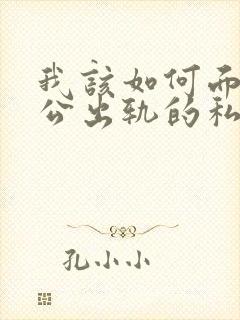 我該如何而
公出軌的私
孔小小